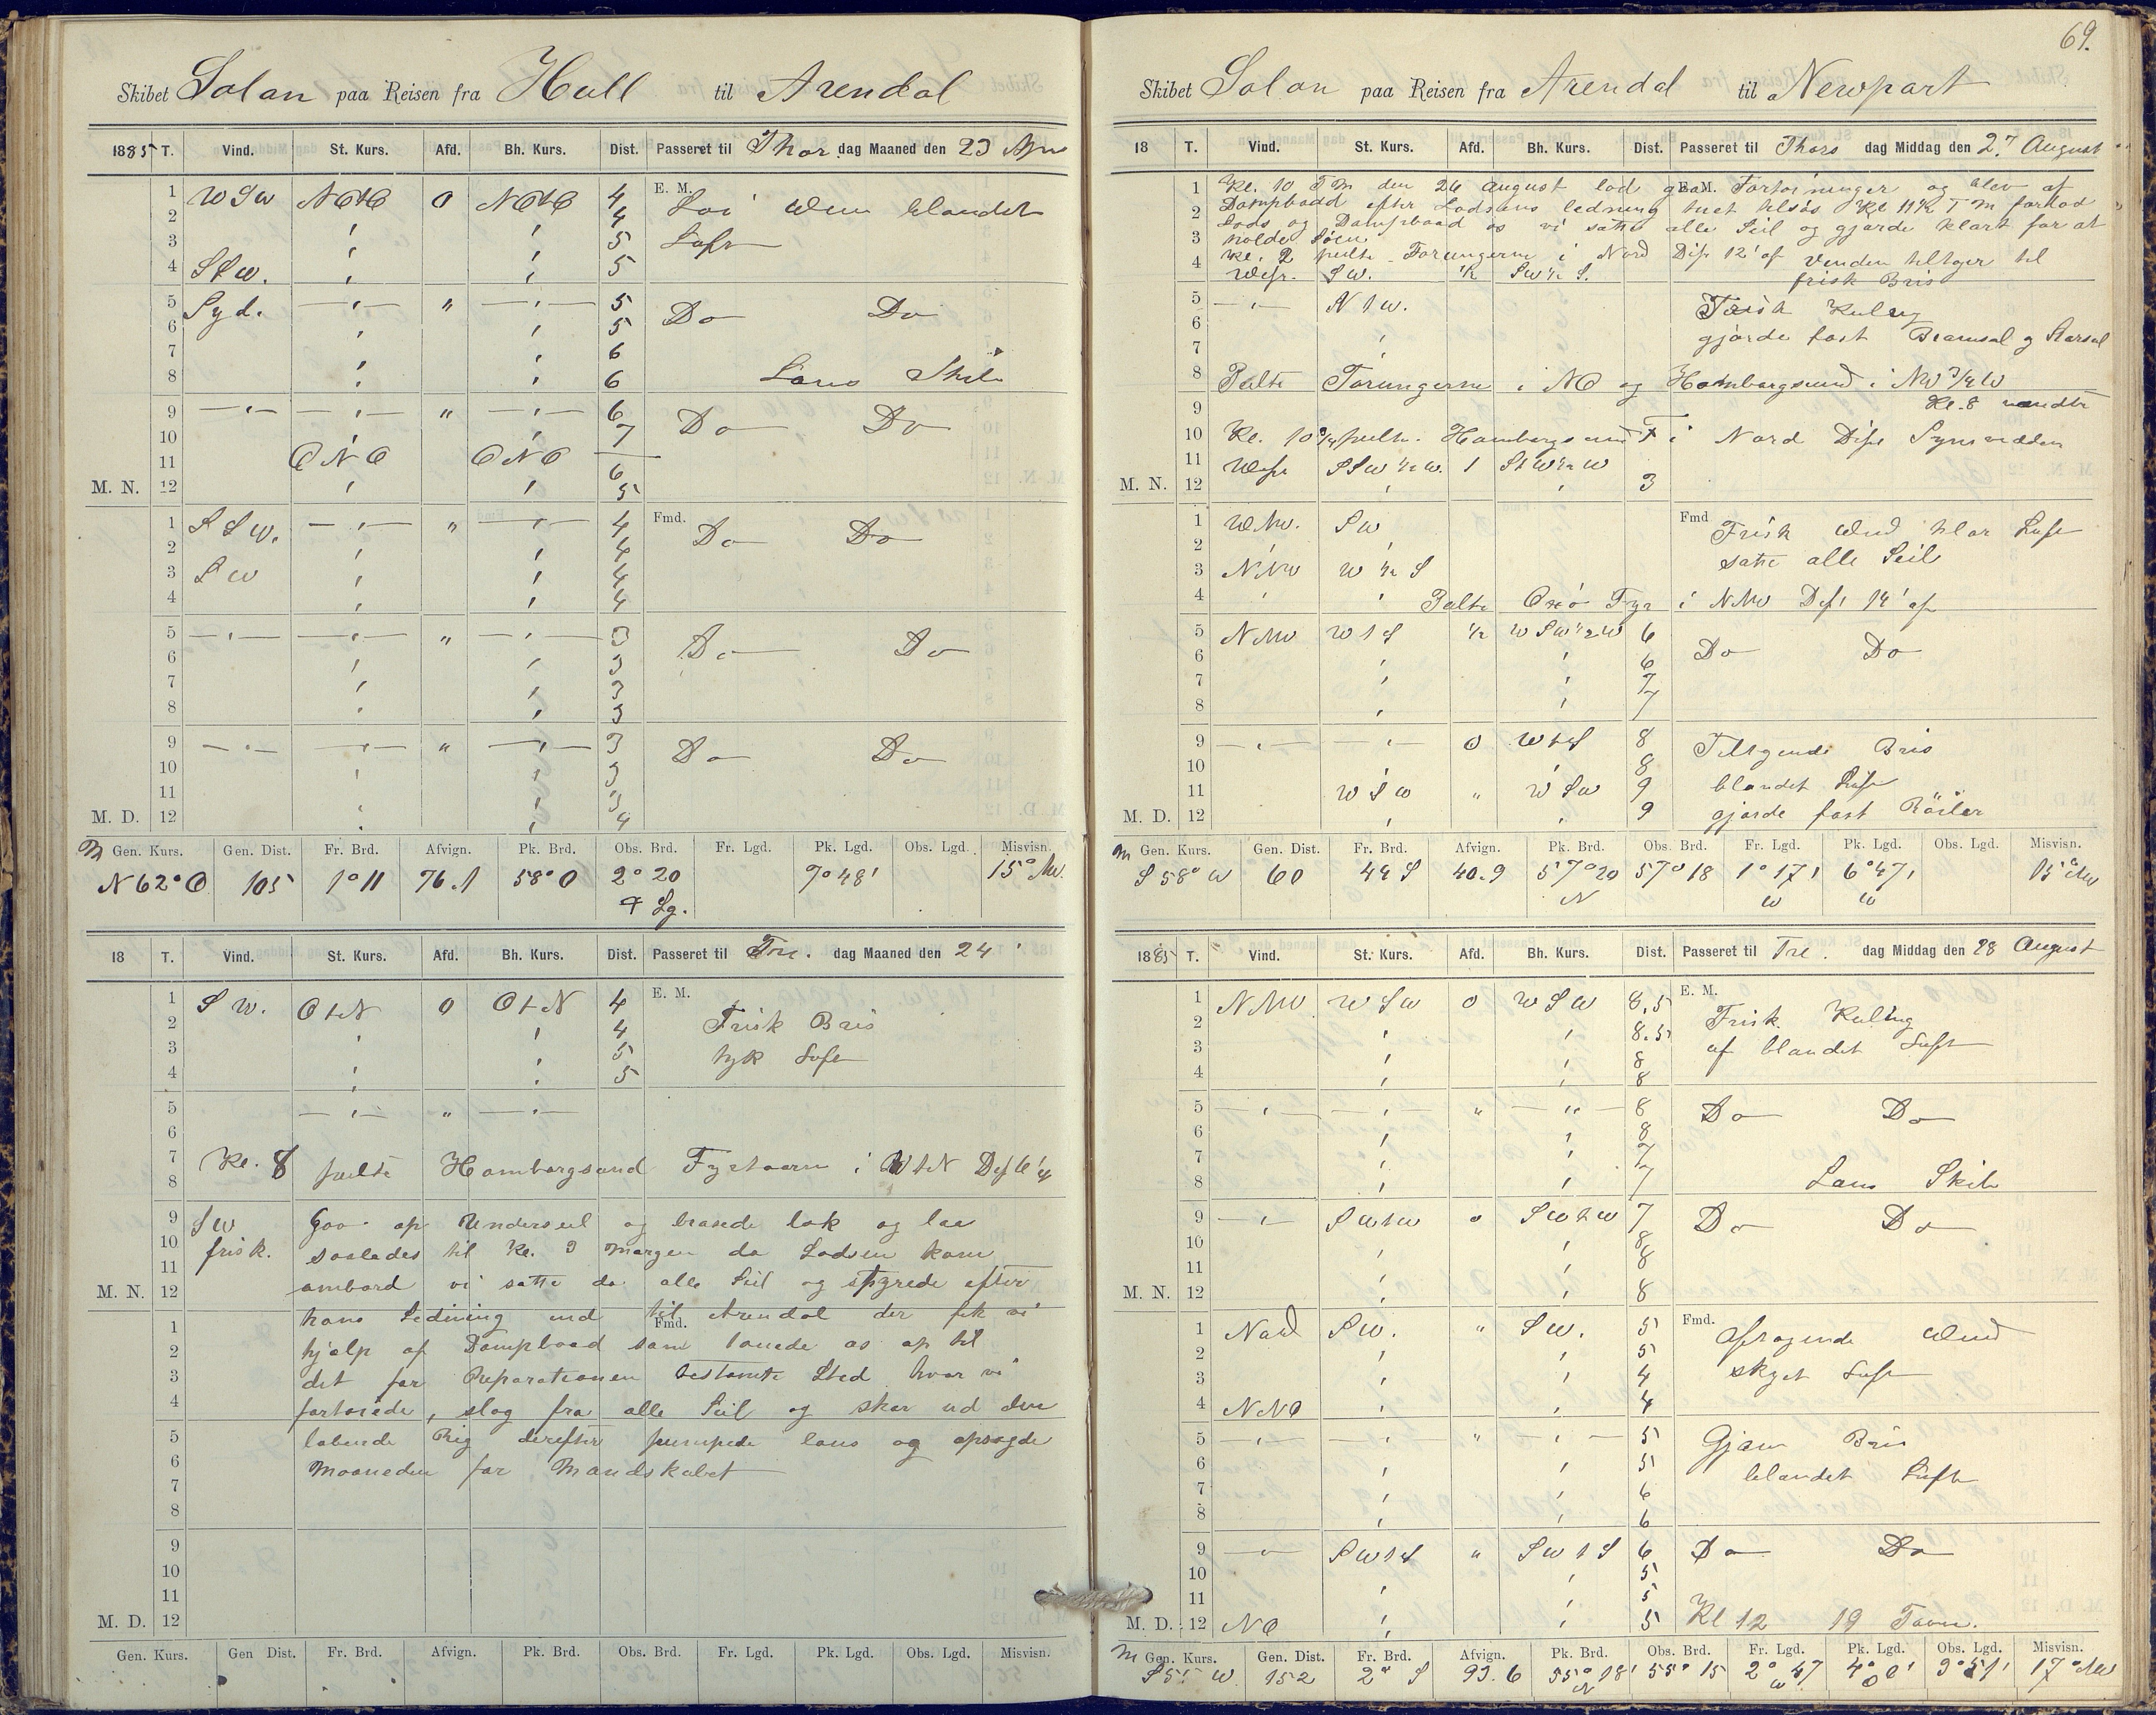 Skibet Solon paa Reisen fra Hull til Arendal
1885 T. Vind. St. Kurs. Afd. Bh. Kurs. Dist. Passeret til Thors dag Maaned den 23
1 WSW NOtO 0 NOtO 4 E. M. Løi Vind blandet
2 4
3 5 Luft
4 StW. 5
5 Syd. " 5 Do Do
6 5
7 6
8 6 Læns Skib
9 " 6 Do Do
10 7
11 ONO ONO 6
M. N. 12 5
1 SSW. " 4 Fmd. Do Do
2 4
3 SW 4
4 4
5 " 3 Do Do
6 3
7 3
8 3
9 " 3 Do Do
10 3
11 3
M. D. 12 4
M Gen. Kurs. Gen. Dist. Fr. Brd. Afvign. Pk. Brd. Obs. Brd. Fr. Lgd. Pk. Lgd. Obs. Lgd. Misvisn.
N 62° O 105 1° 11 76.1 58° 0 2° 20 7° 48' 15° NW.
F Lg.
18 T. Vind. St. Kurs. Afd. Bh. Kurs. Dist. Passeret til Fre. dag Maaned den 24
1 SW. OtN 0 OtN 4 E. M.
2 4 Frisk Bris
3 5 tyk Luft
4 5
5 "
6
7 Kl. 8 peilte Homborgsund Fyrtaarn i WtN
8
9 SW Goo op Underseil og brasede bak og laa
10 frisk. saaledes til Kl. 3 Morgen da Lodsen kom
11 ombord vi satte da alle Seil og styrede efter
M. N. 12
1 hans Ledning ind til Arendal der fik vi
Fmd.
2 hjelp af Dampbaad som bugserede os op til
3 det for Reparationen bestemte Sted hvor vi
4 fortøiede, slog fra alle Seil og skar ud den
5 løbende Rig derefter pumpede læns og opsagde
6 Maaneden for Mandskabet
7
8
9
10
11
M. D. 12
Gen. Kurs. Gen Dist. Fr. Brd. Afvign. Pk. Brd. Obs. Brd. Fr. Lgd. Pk. Lgd. Obs. Lgd. Misvisn.
69.
Skibet Solon paa Reisen fra Arendal til Newport
18 T. Vind. St. Kurs. Afd. Bh. Kurs. Dist. Passeret til Thors dag Middag den 27 August
1 Kl. 10 FM den 26 August lod gaa E. M. Fortøininger og blev af
2 Dampbaad efter Lodsens ledning tilsøs Kl 11½ FM forlod
3 Lods og Dampbaad os vi satte alle Seil og gjorde klart for at
holde Søen
4 Kl. 2 peilte Torungerne i Nord Dist 12' af Vinden tiltager til
West. SW. ½ SW½S. frisk Bris
5 NtW. Frisk Kuling
6
7 gjorde fast Bramseil og Stagseil
8 Peilte Torungerne i NO og Homborgsund i NW¾W
9 Kl. 8 vendte
10 Kl. 10¾ peilte Homborgsund F i Nord Dist
11 West SSW½W. 1 StW½W
M. N. 12 3
1 WNW. SW Fmd Frisk Vind klar Luft
2
3 NNW W½S satte alle Seil
4 Peilte Oxø Fyr i NNW Dist 14' af
5 NNW WtS ½ WSW½W 6
6 6 Do Do
7 7
8 7
9 0 WtS 8 Tiltagende Bris
10 8
11 WSW " WSW 9 blandet Luft
M. D. 12 9 gjorde fast Røiler
M Gen. Kurs. Gen. Dist. Fr. Brd. Afvign. Pk. Brd. Obs. Brd. Fr. Lgd. Pk. Lgd. Obs. Lgd. Misvisn.
S 58° W 60 44 S 40.9 57° 20 57° 18 1° 17' 6° 47' 15° NW
N W W
1885 T. Vind. St. Kurs. Afd. Bh. Kurs. Dist. Passeret til Fre. dag Middag den 28 August
1 NNW WSW 0 WSW 8,5 E. M.
2 8.5 Frisk Kuling
3 8 af blandet Luft
4 8
5 " 8 Do Do
6 8
7 7
8 7 Læns Skib
9 SWtW 0 SWtW 7 Do Do
10 8
11 8
M. N. 12 8
1 Nord SW. " SW. 5 Fmd. Aftagende Vind
2 5
3 4 skyet Luft
4 NNO 4
5 " 5 Gjæv Bris
6 5 blandet Luft
7 6
8 6
9 SWtS " SWtS 6 Do Do
10 5
11 5
M. D. 12 NO 5 Kl 12 19 Favn.
M Gen. Kurs. Gen. Dist. Fr. Brd. Afvign. Pk. Brd. Obs. Brd. Fr. Lgd. Pk. Lgd. Obs. Lgd. Misvisn.
W 152 93.6 55° 18' 55° 15 2° 47 4° 0' 3° 51' 17° NW
N W O